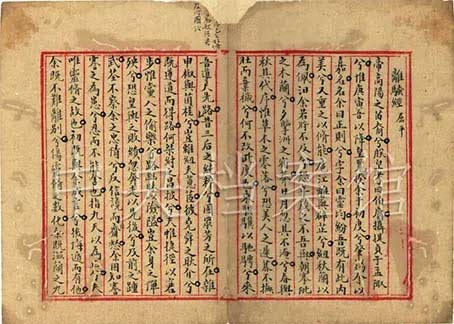 離騷經 屈平
帝高陽之苗裔兮朕皇考曰伯庸攝提貞于孟陬
兮惟庚寅吾以降皇覽揆余于初度兮肇錫余以
嘉名名余曰正則兮字余曰靈均紛吾既有此内
美兮又重之以修能扈江離與辟芷兮紉秋蘭以
為佩汨余若將不及兮恐年歲之不吾與朝搴阰
之木蘭兮夕攬洲之宿莽日月忽其不淹兮春與
秋其代序惟草木之零落兮恐美人之遲暮不撫
壯而棄穢兮何不改此度乘騏驥以馳騁兮來
吾道夫先路昔三后之純粹兮固衆芳之所在雜
申椒與菌桂兮豈維紉夫蕙茝彼堯舜之耿介兮
既遵道而得路何桀紂之猖披兮夫唯捷徑以窘
步惟黨人之偷樂兮路幽昧以險隘豈余身之憚
殃兮恐皇輿之敗績忽奔走以先後兮及前王之踵
武荃不察余之中情兮反信讒而齌怒余固知謇
謇之為患兮忍而不能舍也指九天以為正兮夫
唯靈修之故也初既與余成言兮後悔遁而有他
余既不難離別兮傷靈修之數化余既滋蘭之九
中央档案馆